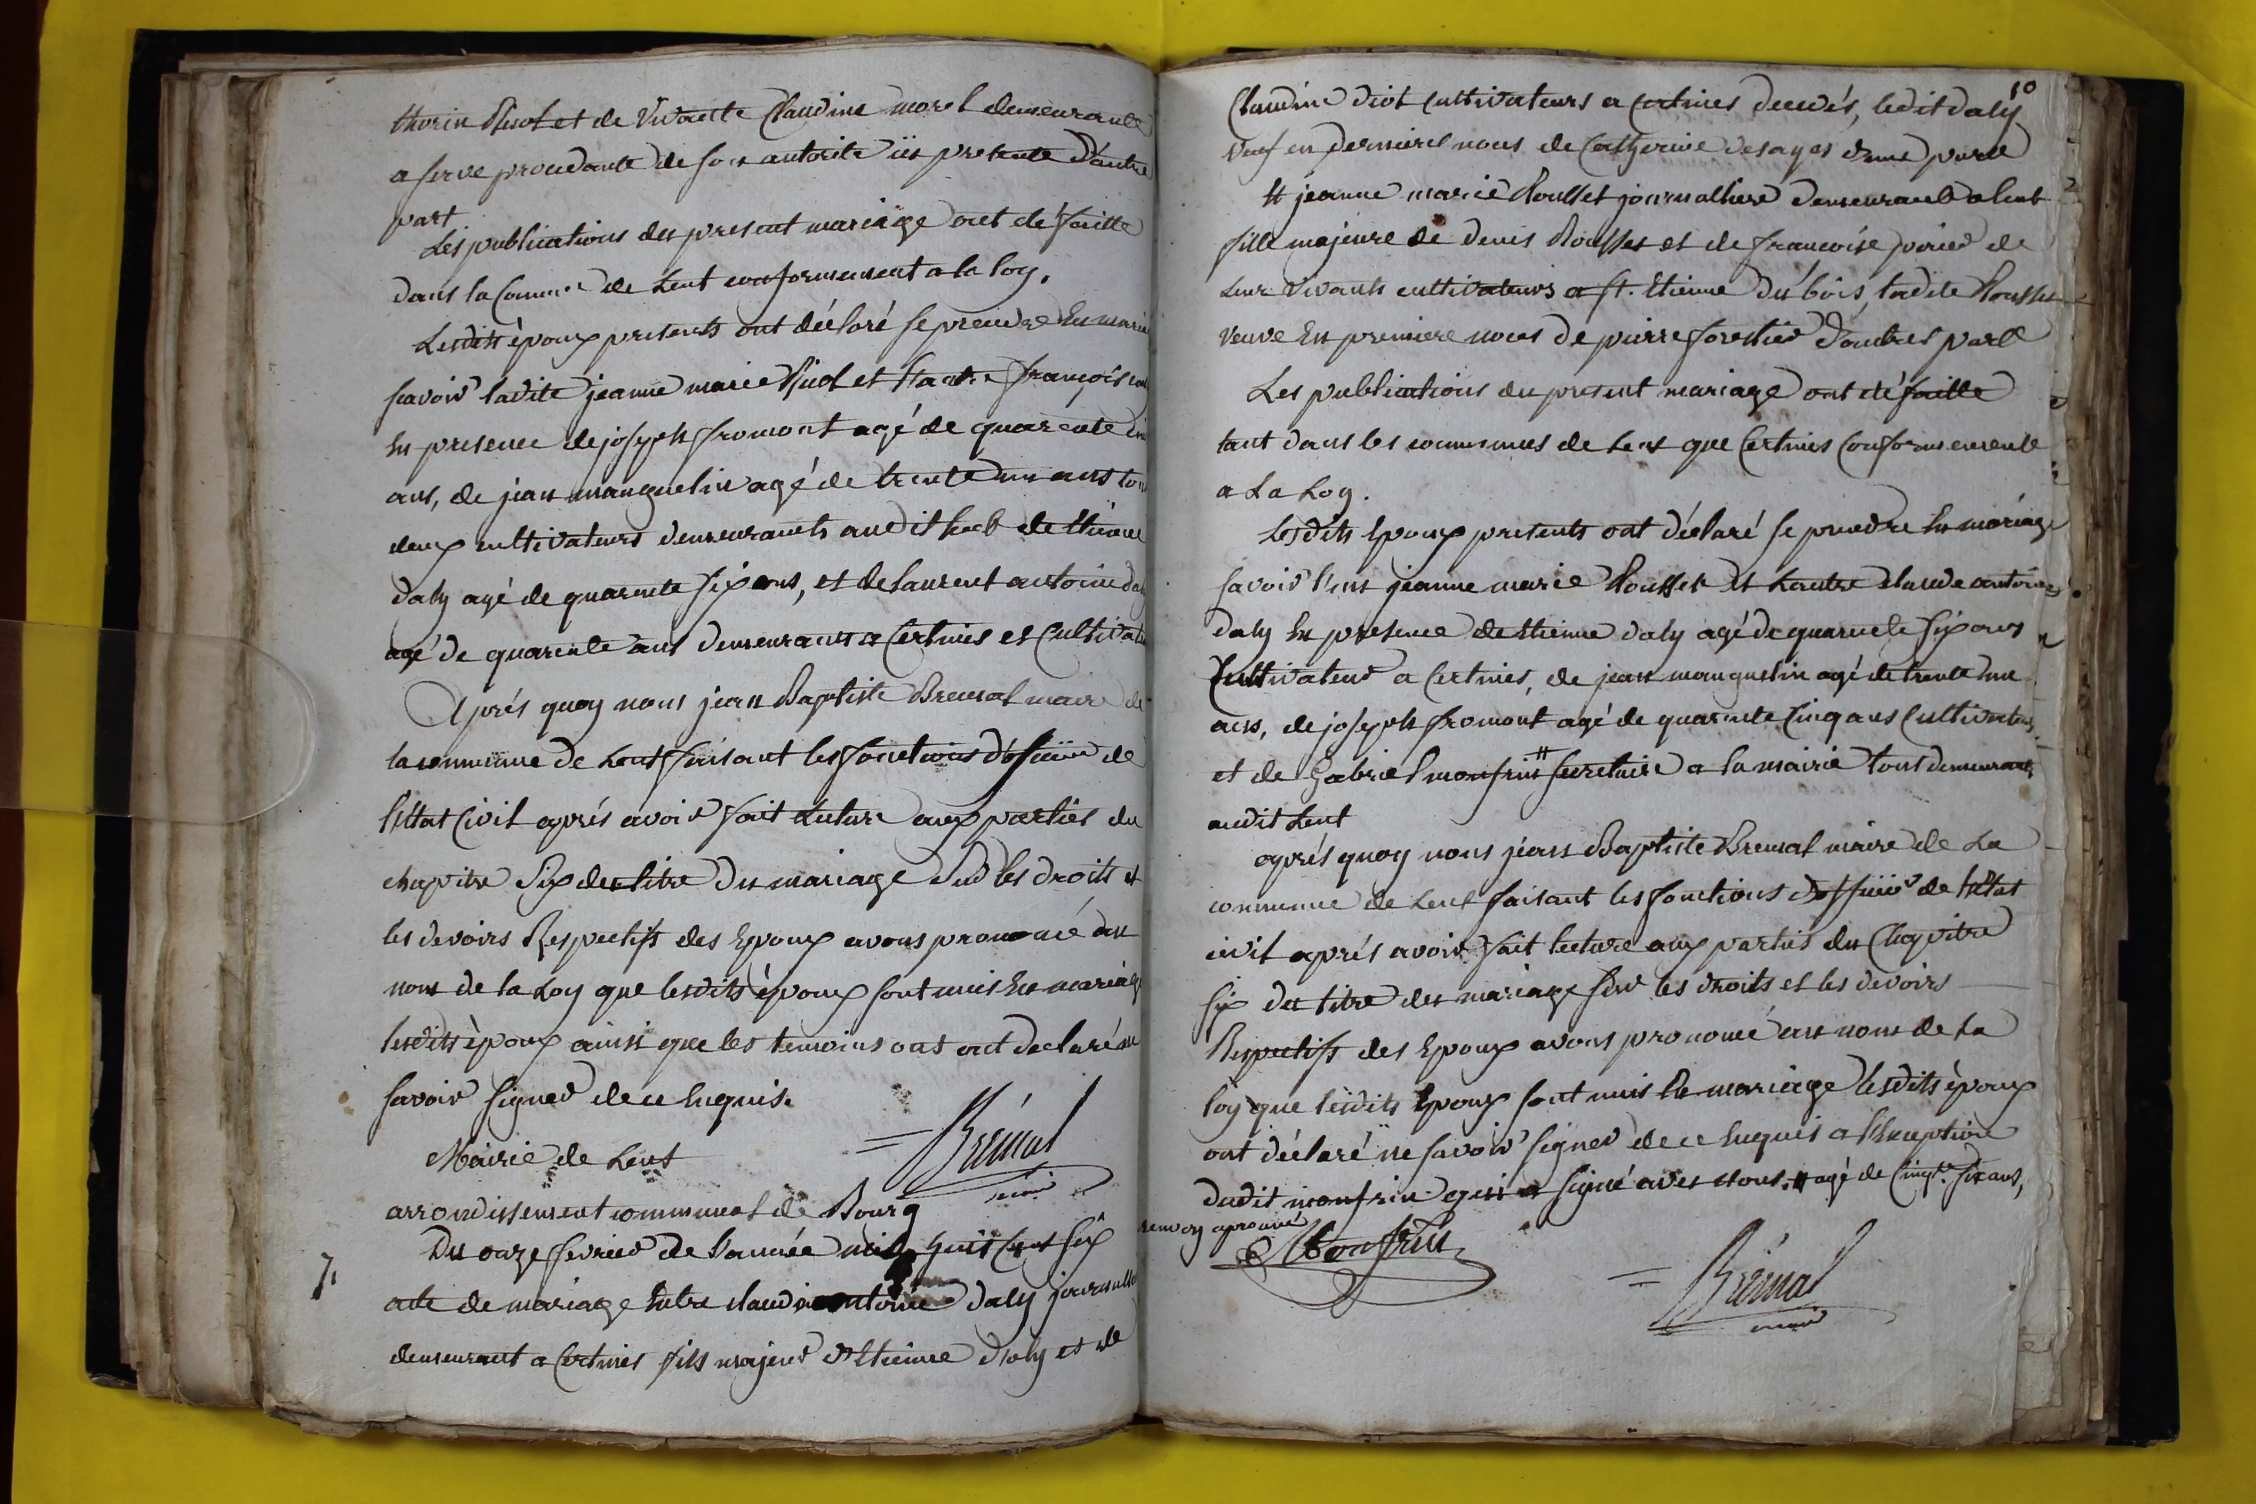 thorin Ruot et de Vivante Claudine morel demeurante
a serve procedante de son autorite ici presente d'autre
part
Les publications du present mariage ont eté faitte
dans la Commne de Lent conformement a la loy.
Lesdits époux presents ont déclaré se prendre En maria
scavoir ladite jeanne marie Ruot et Lautre françois
En presence de joseph fromont agé de quarente
ans, de jean manguelin agé de trente un ans tou
deux cultivateurs demeurants audit Lent de Etienne
daly agé de quarente six ans, et de laurent antoine
agé de quarente ans demeurant a Certines et Cultivate
Aprés quoy nous jean Baptiste Breuval maire de
la commune de Lent faisant les fonctions d'officier de
l'Etat Civil aprés avoir fait Lecture aux parties du
chapitre Six du titre du mariage Sur les droits et
les devoirs Respectifs des Epoux avons prononcé au
nom de la Loy que lesdits époux sont unis En mariage
lesdits époux ainsi que les temoins ont ont declaré ne
savoir signer de ce Enquis.
Mairie de Lent
arrondissement communal de Bourg
7. Du onze fevrier de l'année mil huit Cent Six
acte de mariage Entre claude antoine daly journallie
demeurant a Certines fils majeur d'Etienne daly et de
10
Claudine diot Cultivateurs a Certines decedés, ledit daly
veuf en dernieres noces de Catherine desayes d'une part
Et jeanne marie Rousset journalliere demeurante a Lent
fille majeure de denis Rousset et de francoise de
Leur Vivants cultivateurs a st. Etienne du bois, ladite Rousset
veuve En premiere noces de pierre forestier d'autres part
Les publications du present mariage ont eté faitte
tant dans les communes de Lent que Certines Conformement
a La Loy.
Lesdits Epoux presents ont déclaré se prendre En mariage
savoir l'une jeanne marie Rousset et Lautre claude antoine
daly En presence de Etienne daly agé de quarente six ans
Cultivateur a Certines, de jean manguelin agé de trente un
ans, de joseph fromont agé de quarente Cinq ans Cultivateurs,
et de Gabriel monfrin # secretaire a la mairie tous demeurants
audit Lent
aprés quoy nous jean Baptiste Breuval maire de La
commune de Lent faisant les fonctions d'officier de l'Etat
civil aprés avoir fait lecture aux parties du Chapitre
six du titre du mariage sur les droits et les devoirs
Respectifs des Epoux avons prononcé au nom de la
loy que lesdits Epoux sont unis En mariage lesdits époux
ont déclaré ne savoir signer de ce Enquis a l'Exeption
dudit monfrin qui a signé avec nous. # agé de Cinqte. six ans,
renvoy aprouvé
Monfrin